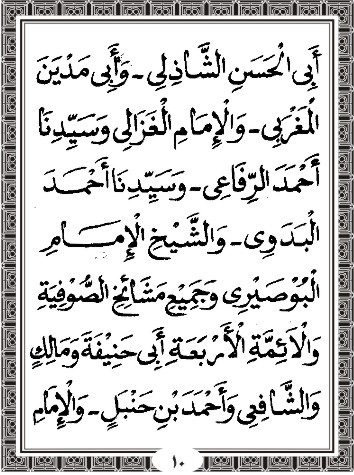 أَبِى الْحَسَنِ الشَّاذِلِى - وَأَبِى مَدْيَنَ
الْمَغْرِبِى - وَالْإِمَامِ الْغَزَالِى وَسَيِّدِنَا
أَحْمَدَ الرِّفَاعِى - وَسَيِّدِنَا أَحْمَدَ
الْبَدَوِى - وَالشَّيْخِ الْإِمَامِ
الْبُوصَيْرِى وَجَمِيْعِ مَشَائِخِ الصُّوْفِيَةِ
وَالْاَئِمَّةِ الْأَرْبَعَةِ أَبِى حَنِيْفَةَ وَمَالِكٍ
وَالشَّافِعِى وَأَحْمَدَ بْنِ حَنْبَلٍ - وَالْإِمَامِ
١٠